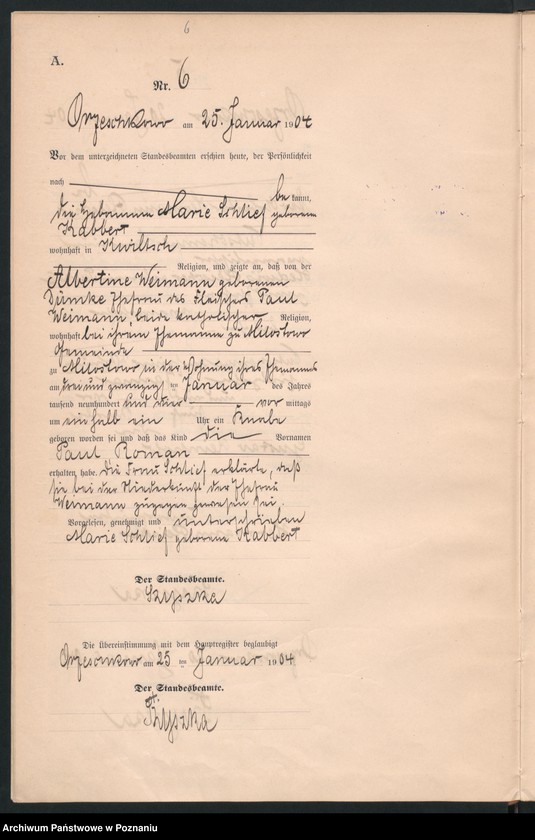 6
A.
Nr. 6
Orzeschkowo am 25. Januar 1904
Vor dem unterzeichneten Standesbeamten erschien heute, der Persönlichkeit
nach be kannt,
die Hebamme Marie Schlief geborene
Kabbert
wohnhaft in Kwiltsch
Religion, und zeigte an, daß von der
Albertine Weimann geborenen
Dümke Ehefrau des Fleischers Paul
Weimann, beide katholischer Religion,
wohnhaft bei ihrem Ehemanne zu Milostowo
Gemeinde
zu Milostowo in der Wohnung ihres Ehemannes
am drei und zwanzigsten Januar des Jahres
tausend neunhundert und vier vor mittags
um ein halb ein Uhr ein Knabe
geboren worden sei und daß das Kind die Vornamen
Paul Roman
erhalten habe. Die Frau Schlief erklärte, daß
sie bei der Niederkunft der Ehefrau
Weimann zugegen gewesen sei.
Vorgelesen, genehmigt und unterschrieben
Marie Schlief geborene Kabbert
Der Standesbeamte.
Szyszka
Die Übereinstimmung mit dem Hauptregister beglaubigt
Orzeschkowo am 25 ten Januar 1904
Der Standesbeamte.
Szyszka
Archiwum Państwowe w Poznaniu